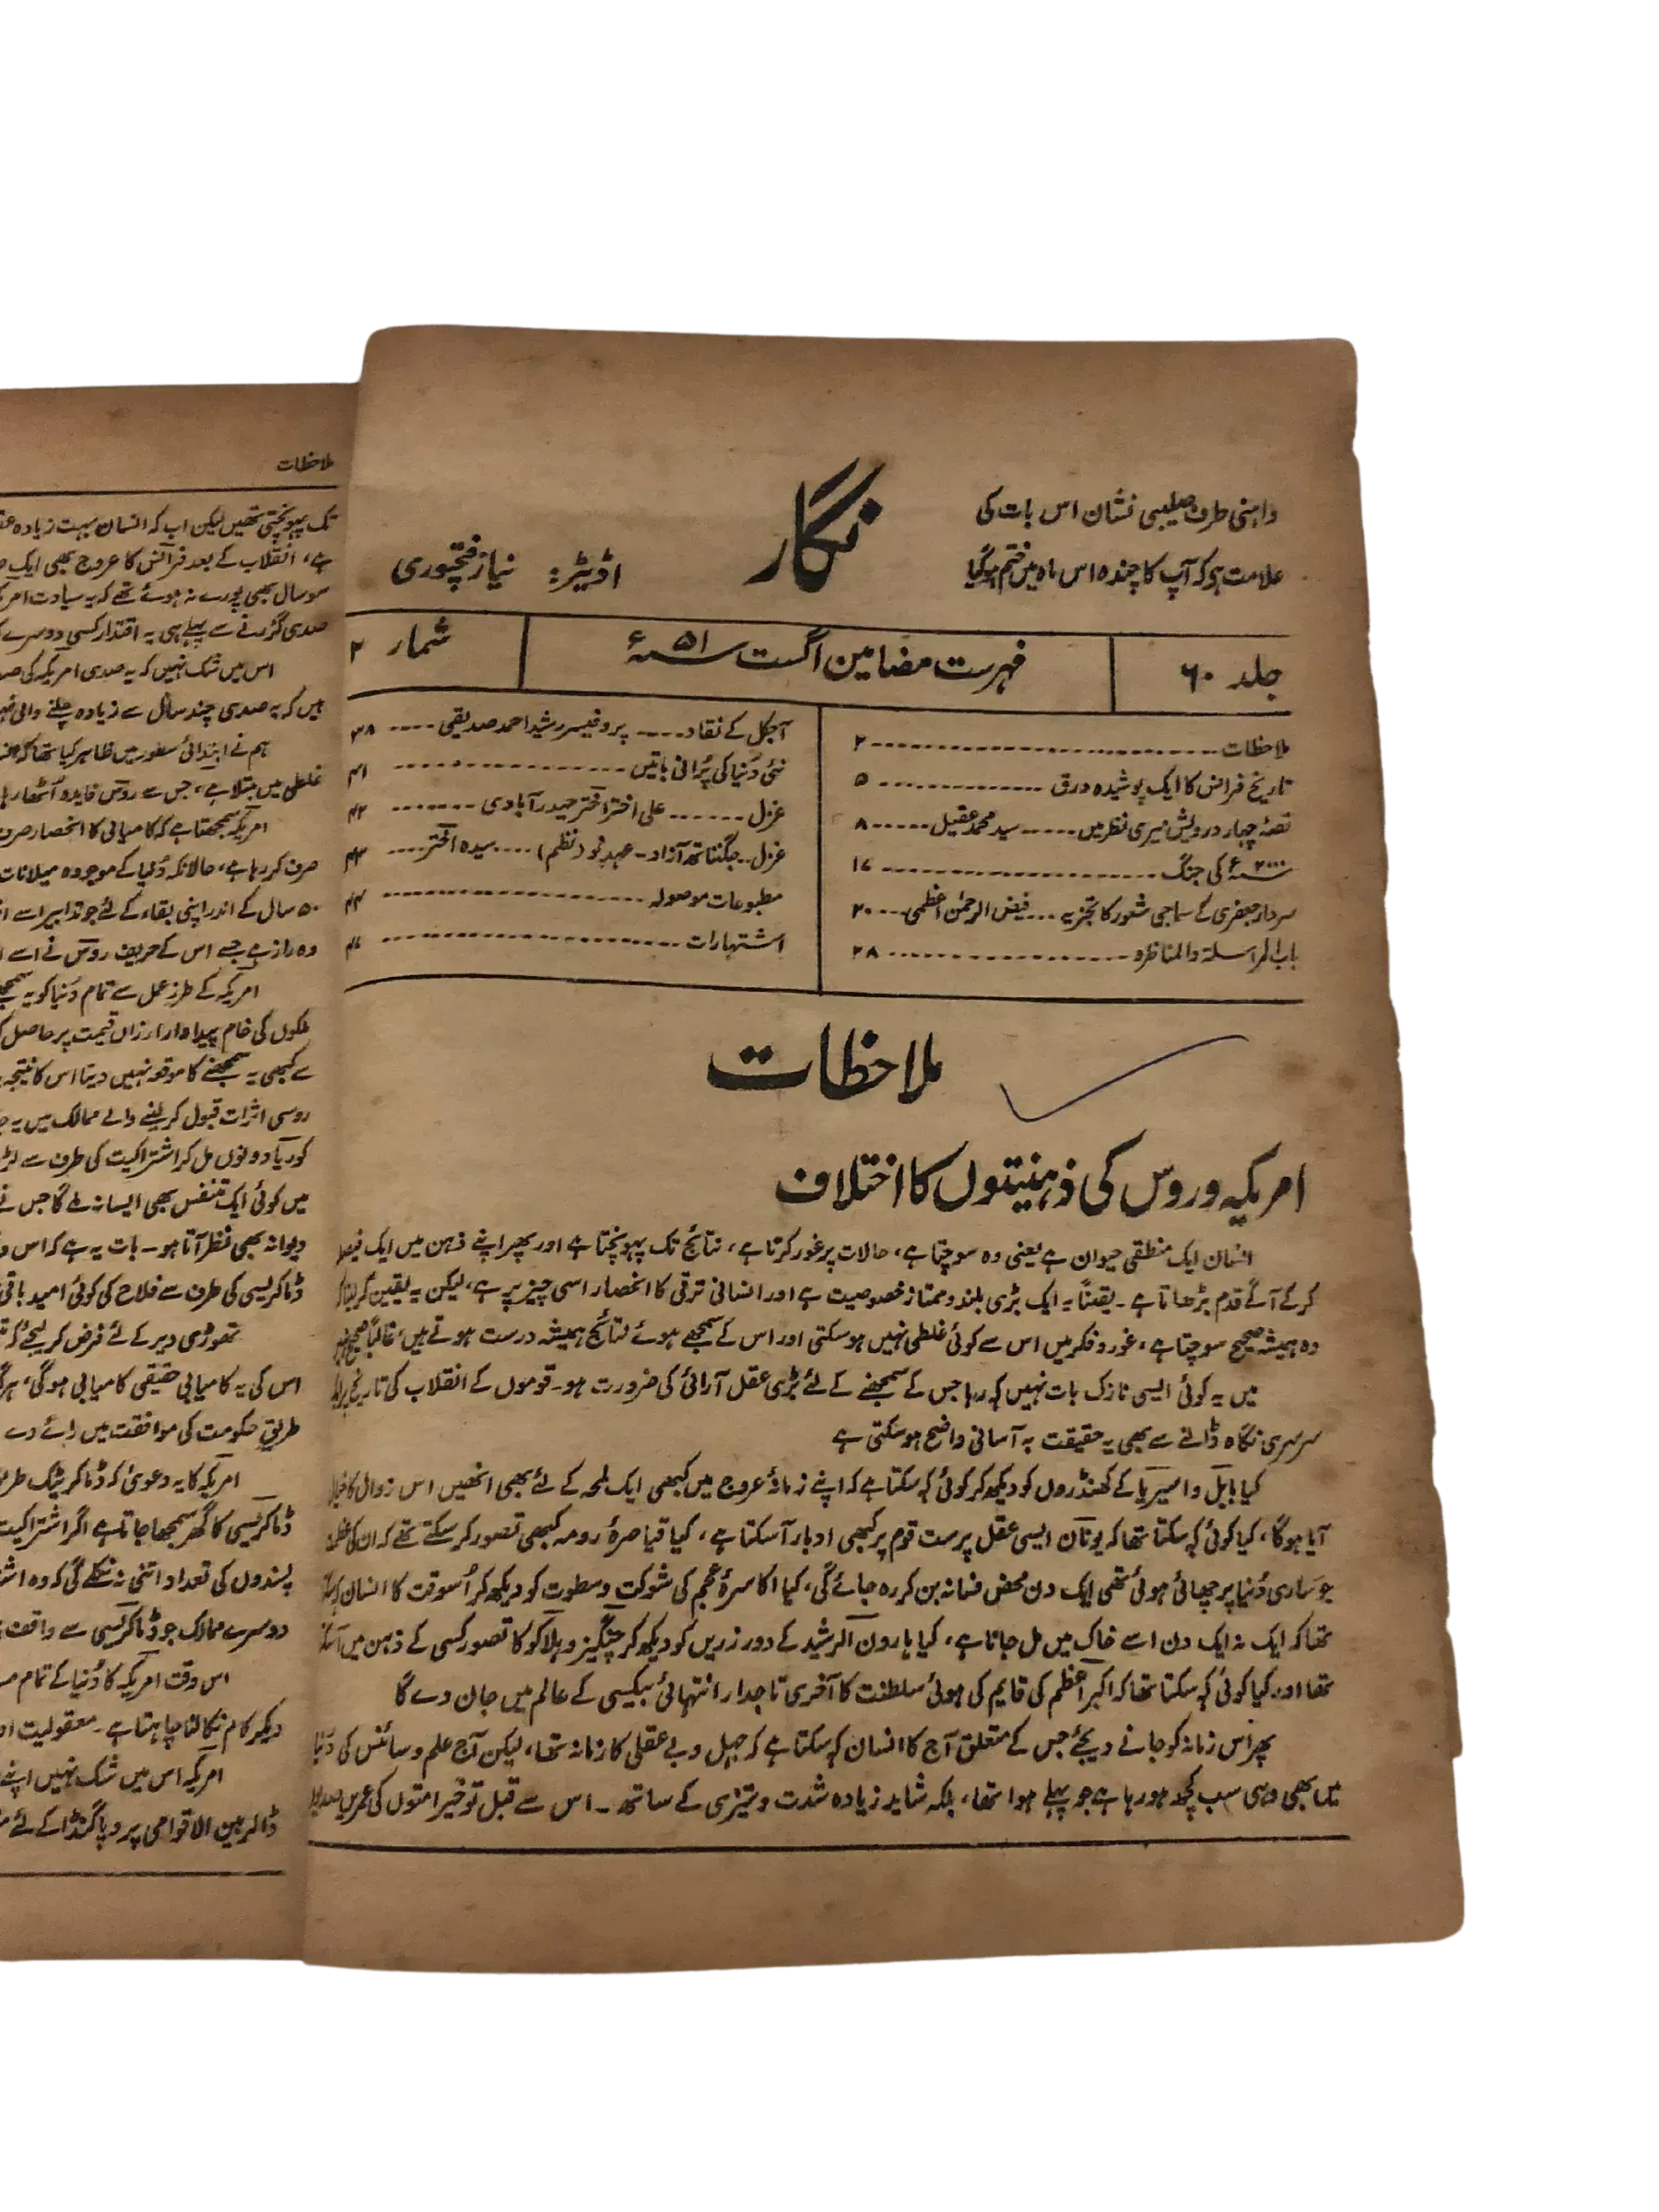 داہنی طرف صلیبی نشان اس بات کی
علامت ہو کہ آپ کا چندہ اس ماہ میں ختم ہوگیا
نگار
اڈیٹر: نیاز فتحپوری
جلد ۶۰
فہرست مضامین اگست ۵۱ء
شمار ۲
ملاحظات ---------- ۲
تاریخ فرانس کا ایک پوشیدہ ورق ---------- ۵
قصۂ چہار درویش میری نظر میں ----- سید محمد عقیل ------ ۸
۲۰۰۰ء کی جنگ ---------- ۱۶
سردار جعفری کے سماجی شعور کا تجزیہ --- فیض الرحمٰن اعظمی --- ۲۰
باب المراسلۃ والمناظرہ ---------- ۲۸
آجکل کے نقاد ----- پروفیسر رشید احمد صدیقی ---- ۳۸
نئی دُنیا کی پُرانی باتیں ---------- ۴۱
غزل ------- علی اختر اختر حیدرآبادی -------- ۴۲
غزل -- جگنناتھ آزاد - عہدِ نو (نظم) ---- سیدہ اختر ---- ۴۳
مطبوعات موصولہ ---------- ۴۴
اشتہارات ----------
ملاحظات
امریکہ و روس کی ذہنیتوں کا اختلاف
انسان ایک منطقی حیوان ہے یعنی وہ سوچتا ہے، حالات پر غور کرتا ہے، نتائج تک پہونچتا ہے اور پھر اپنے ذہن میں ایک فیصلہ
کرکے آگے قدم بڑھاتا ہے۔ یقیناً یہ ایک بڑی بلند و ممتاز خصوصیت ہے اور انسانی ترقی کا انحصار اسی چیز پر ہے، لیکن یہ یقین کرلینا کہ
وہ ہمیشہ صحیح سوچتا ہے، غور و فکر میں اس سے کوئی غلطی نہیں ہوسکتی اور اس کے سمجھے ہوئے نتائج ہمیشہ درست ہوتے ہیں، غالباً صحیح نہیں
میں یہ کوئی ایسی نازک بات نہیں کہہ رہا جس کے سمجھنے کے لئے بڑی عقل آرائی کی ضرورت ہو۔ قوموں کے انقلاب کی تاریخ پر
سرسری نگاہ ڈالنے سے بھی یہ حقیقت بہ آسانی واضح ہوسکتی ہے
کیا بابل و اسیریا کے کھنڈروں کو دیکھ کر کوئی کہہ سکتا ہے کہ اپنے زمانۂ عروج میں کبھی ایک لمحہ کے لئے بھی انھیں اس زوال کا خیال
آیا ہوگا، کیا کوئی کہہ سکتا تھا کہ یونان ایسی عقل پرست قوم پر کبھی ادبار آسکتا ہے، کیا قیاصرۂ رومہ کبھی تصور کرسکتے تھے کہ ان کی عظمت
جو ساری دُنیا پر چھائی ہوئی تھی ایک دن محض فسانہ بن کر رہ جائے گی، کیا اکاسرۂ عجم کی شوکت و سطوت کو دیکھ کر اُسوقت کا انسان
تھا کہ ایک نہ ایک دن اسے خاک میں مل جانا ہے، کیا ہارون الرشید کے دور زریں کو دیکھ کر چنگیز و ہلاکو کا تصور کسی کے ذہن میں
تھا اور کیا کوئی کہہ سکتا تھا کہ اکبر اعظم کی قایم کی ہوئی سلطنت کا آخری تاجدار انتہائی بیکسی کے عالم میں جان دے گا
پھر اُس زمانہ کو جانے دیجئے جس کے متعلق آج کا انسان کہہ سکتا ہے کہ جہل و بے عقلی کا زمانہ تھا، لیکن آج علم و سائنس کی دُنیا
میں بھی وہی سب کچھ ہو رہا ہے جو پہلے ہوا تھا، بلکہ شاید زیادہ شدت و تیزی کے ساتھ۔ اس سے قبل تو خیر امتوں کی عمریں صدیوں
ملاحظات
تک پہونچتی تھیں لیکن اب کہ انسان بہت زیادہ
ہے، انقلاب کے بعد فرانس کا عروج بھی ایک
سو سال بھی پورے نہ ہوئے تھے کہ یہ سیادت
صدی گزرنے سے پہلے ہی یہ اقتدار کسی دوسرے
اس میں شک نہیں کہ یہ صدی امریکہ کی
ہیں کہ یہ صدی چند سال سے زیادہ چلنے والی
ہم نے ابتدائی سطور میں ظاہر کیا تھا کہ
غلطی میں مبتلا ہے، جس سے روس فایدہ اُٹھا
امریکہ سمجھتا ہے کہ کامیابی کا انحصار صرف
صرف کر رہا ہے، حالانکہ دُنیا کے موجودہ میلانات
۵۰ سال کے اندر اپنی بقاء کے لئے جو تدابیر اسے
وہ راز ہے جسے اس کے حریف روس نے اسے
امریکہ کے طرزِ عمل سے تمام دُنیا کو یہ
ملکوں کی خام پیداوار ارزاں قیمت پر حاصل
سے کبھی یہ سمجھنے کا موقع نہیں دیتا اس کا نتیجہ
روسی اثرات قبول کرلینے والے ممالک میں یہ
کوریا دونوں مل کر اشتراکیت کی طرف سے
میں کوئی ایک متنفس بھی ایسا نہ ملے گا جس نے
دیوانہ بھی نظر آتا ہو۔ بات یہ ہے کہ اس
ڈماکریسی کی طرف سے فلاح کی کوئی امید باقی
تھوڑی دیر کے لئے فرض کرلیجئے کہ
اس کی یہ کامیابی حقیقی کامیابی ہوگی،
طریق حکومت کی موافقت میں رائے دے
امریکہ کا یہ دعویٰ کہ ڈماکریٹک
ڈماکریسی کا گھر سمجھا جاتا ہے اگر اشتراکیت
پسندوں کی تعداد اتنی نہ نکلے گی کہ وہ
دوسرے ممالک جو ڈماکریسی سے واقف
اس وقت امریکہ کا دُنیا کے تمام
دیکر کام نکالنا چاہتا ہے۔ معقولیت
امریکہ اس میں شک نہیں اپنے
ڈالر بین الاقوامی پروپاگنڈا کے لئے